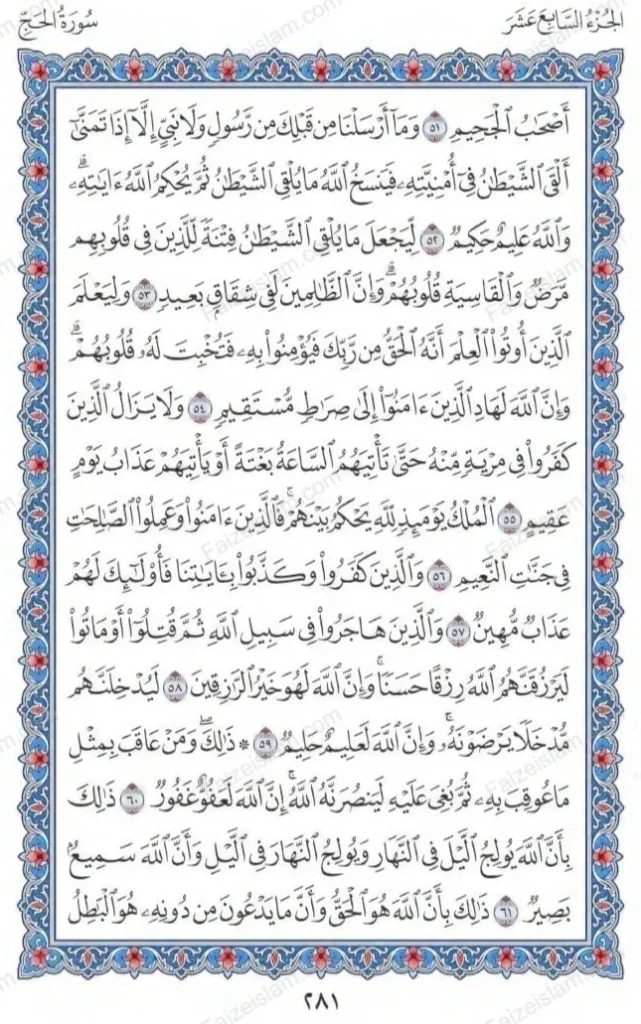 الجُزْءُ السَّابِعَ عَشَرَ
سُورَةُ الحَجِّ
أَصْحَٰبُ ٱلْجَحِيمِ ٥١ وَمَآ أَرْسَلْنَا مِن قَبْلِكَ مِن رَّسُولٍ وَلَا نَبِيٍّ إِلَّآ إِذَا تَمَنَّىٰٓ
أَلْقَى ٱلشَّيْطَٰنُ فِىٓ أُمْنِيَّتِهِۦ فَيَنسَخُ ٱللَّهُ مَا يُلْقِى ٱلشَّيْطَٰنُ ثُمَّ يُحْكِمُ ٱللَّهُ ءَايَٰتِهِۦۗ
وَٱللَّهُ عَلِيمٌ حَكِيمٌ ٥٢ لِّيَجْعَلَ مَا يُلْقِى ٱلشَّيْطَٰنُ فِتْنَةً لِّلَّذِينَ فِى قُلُوبِهِم
مَّرَضٌ وَٱلْقَاسِيَةِ قُلُوبُهُمْۗ وَإِنَّ ٱلظَّٰلِمِينَ لَفِى شِقَاقٍۭ بَعِيدٍ ٥٣ وَلِيَعْلَمَ
ٱلَّذِينَ أُوتُوا۟ ٱلْعِلْمَ أَنَّهُ ٱلْحَقُّ مِن رَّبِّكَ فَيُؤْمِنُوا۟ بِهِۦ فَتُخْبِتَ لَهُۥ قُلُوبُهُمْۗ
وَإِنَّ ٱللَّهَ لَهَادِ ٱلَّذِينَ ءَامَنُوٓا۟ إِلَىٰ صِرَٰطٍ مُّسْتَقِيمٍ ٥٤ وَلَا يَزَالُ ٱلَّذِينَ
كَفَرُوا۟ فِى مِرْيَةٍ مِّنْهُ حَتَّىٰ تَأْتِيَهُمُ ٱلسَّاعَةُ بَغْتَةً أَوْ يَأْتِيَهُمْ عَذَابُ يَوْمٍ
عَقِيمٍ ٥٥ ٱلْمُلْكُ يَوْمَئِذٍ لِّلَّهِ يَحْكُمُ بَيْنَهُمْۚ فَٱلَّذِينَ ءَامَنُوا۟ وَعَمِلُوا۟ ٱلصَّٰلِحَٰتِ
فِى جَنَّٰتِ ٱلنَّعِيمِ ٥٦ وَٱلَّذِينَ كَفَرُوا۟ وَكَذَّبُوا۟ بِـَٔايَٰتِنَا فَأُو۟لَٰٓئِكَ لَهُمْ
عَذَابٌ مُّهِينٌ ٥٧ وَٱلَّذِينَ هَاجَرُوا۟ فِى سَبِيلِ ٱللَّهِ ثُمَّ قُتِلُوٓا۟ أَوْ مَاتُوا۟
لَيَرْزُقَنَّهُمُ ٱللَّهُ رِزْقًا حَسَنًاۚ وَإِنَّ ٱللَّهَ لَهُوَ خَيْرُ ٱلرَّٰزِقِينَ ٥٨ لَيُدْخِلَنَّهُم
مُّدْخَلًا يَرْضَوْنَهُۥۚ وَإِنَّ ٱللَّهَ لَعَلِيمٌ حَلِيمٌ ٥٩ * ذَٰلِكَۖ وَمَنْ عَاقَبَ بِمِثْلِ
مَا عُوقِبَ بِهِۦ ثُمَّ بُغِىَ عَلَيْهِ لَيَنصُرَنَّهُ ٱللَّهُۚ إِنَّ ٱللَّهَ لَعَفُوٌّ غَفُورٌ ٦٠ ذَٰلِكَ
بِأَنَّ ٱللَّهَ يُولِجُ ٱلَّيْلَ فِى ٱلنَّهَارِ وَيُولِجُ ٱلنَّهَارَ فِى ٱلَّيْلِ وَأَنَّ ٱللَّهَ سَمِيعٌۢ
بَصِيرٌ ٦١ ذَٰلِكَ بِأَنَّ ٱللَّهَ هُوَ ٱلْحَقُّ وَأَنَّ مَا يَدْعُونَ مِن دُونِهِۦ هُوَ ٱلْبَٰطِلُ
٢٨١
Faizeislam.com